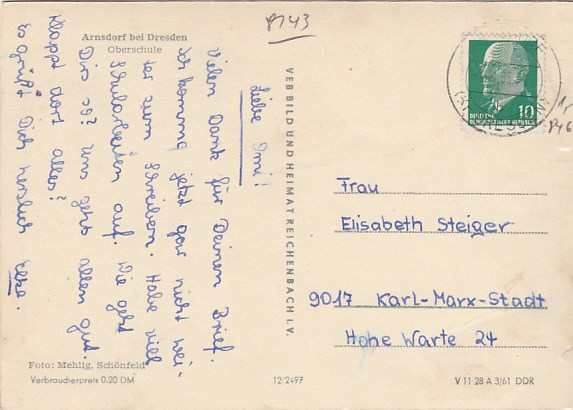 8143
Arnsdorf bei Dresden
Oberschule
Liebe Omi!
Vielen Dank für Deinen Brief.
Ich komme jetzt gar nicht wei-
ter zum Schreiben. Habe viel
Schularbeiten auf. Wie geht
Dirs so? Uns gehts allen gut.
Klappt dort alles?
Es grüßt Dich herzlich Elke.
Foto: Mehlig, Schönfeld
Verbraucherpreis 0.20 DM
VEB BILD UND HEIMAT REICHENBACH i. V.
12/2497
10
DEUTSCHE
DEMOKRATISCHE REPUBLIK
Frau
Elisabeth Steiger
9017 Karl-Marx-Stadt
Hohe Warte 24
V 11 28 A 3/61 DDR